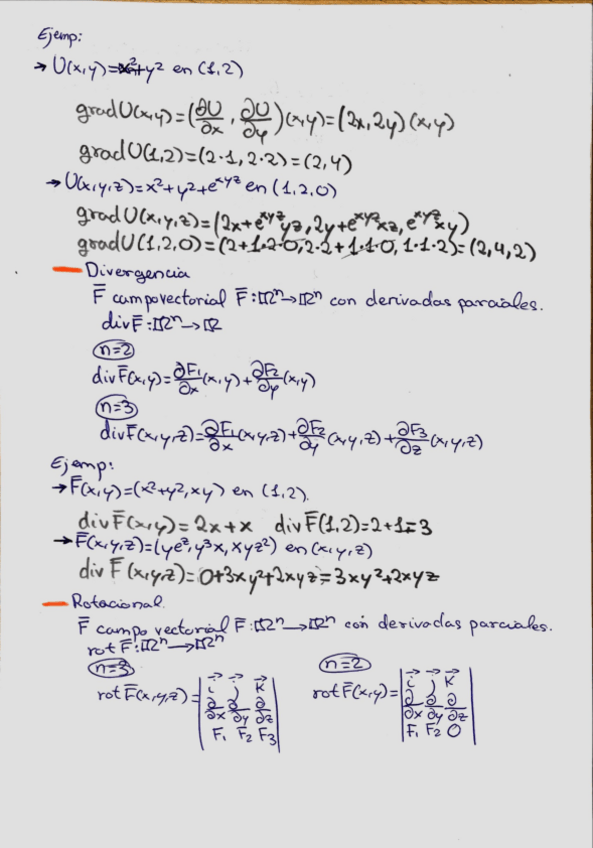 Ejemp:
→ U(x,y)=x²+y² en (1,2)
grad U(x,y)=(∂U/∂x, ∂U/∂y)(x,y)=(2x,2y)(x,y)
grad U(1,2)=(2·1,2·2)=(2,4)
→ U(x,y,z)=x²+y²+e^xyz en (1,2,0)
grad U(x,y,z)=(2x+e^xyz yz, 2y+e^xyz xz, e^xyz xy)
grad U(1,2,0)=(2+1·2·0,2·2+1·1·0,1·1·2)=(2,4,2)
— Divergencia
F̄ campo vectorial F̄:ℝⁿ→ℝⁿ con derivadas parciales.
div F̄:ℝⁿ→ℝ
n=2
div F̄(x,y)=∂F₁/∂x(x,y)+∂F₂/∂y(x,y)
n=3
div F̄(x,y,z)=∂F₁/∂x(x,y,z)+∂F₂/∂y(x,y,z)+∂F₃/∂z(x,y,z)
Ejemp:
→ F̄(x,y)=(x²+y²,xy) en (1,2).
div F̄(x,y)=2x+x div F̄(1,2)=2+1=3
→ F̄(x,y,z)=(ye^z,y³x,xyz²) en (x,y,z)
div F̄(x,y,z)=0+3xy²+2xyz=3xy²+2xyz
— Rotacional.
F̄ campo vectorial F̄:ℝⁿ→ℝⁿ con derivadas parciales.
rot F̄:ℝⁿ→ℝⁿ
n=3 n=2
rot F̄(x,y,z)=| i⃗ j⃗ k⃗ ; ∂/∂x ∂/∂y ∂/∂z ; F₁ F₂ F₃ | rot F̄(x,y)=| i⃗ j⃗ k⃗ ; ∂/∂x ∂/∂y ∂/∂z ; F₁ F₂ 0 |